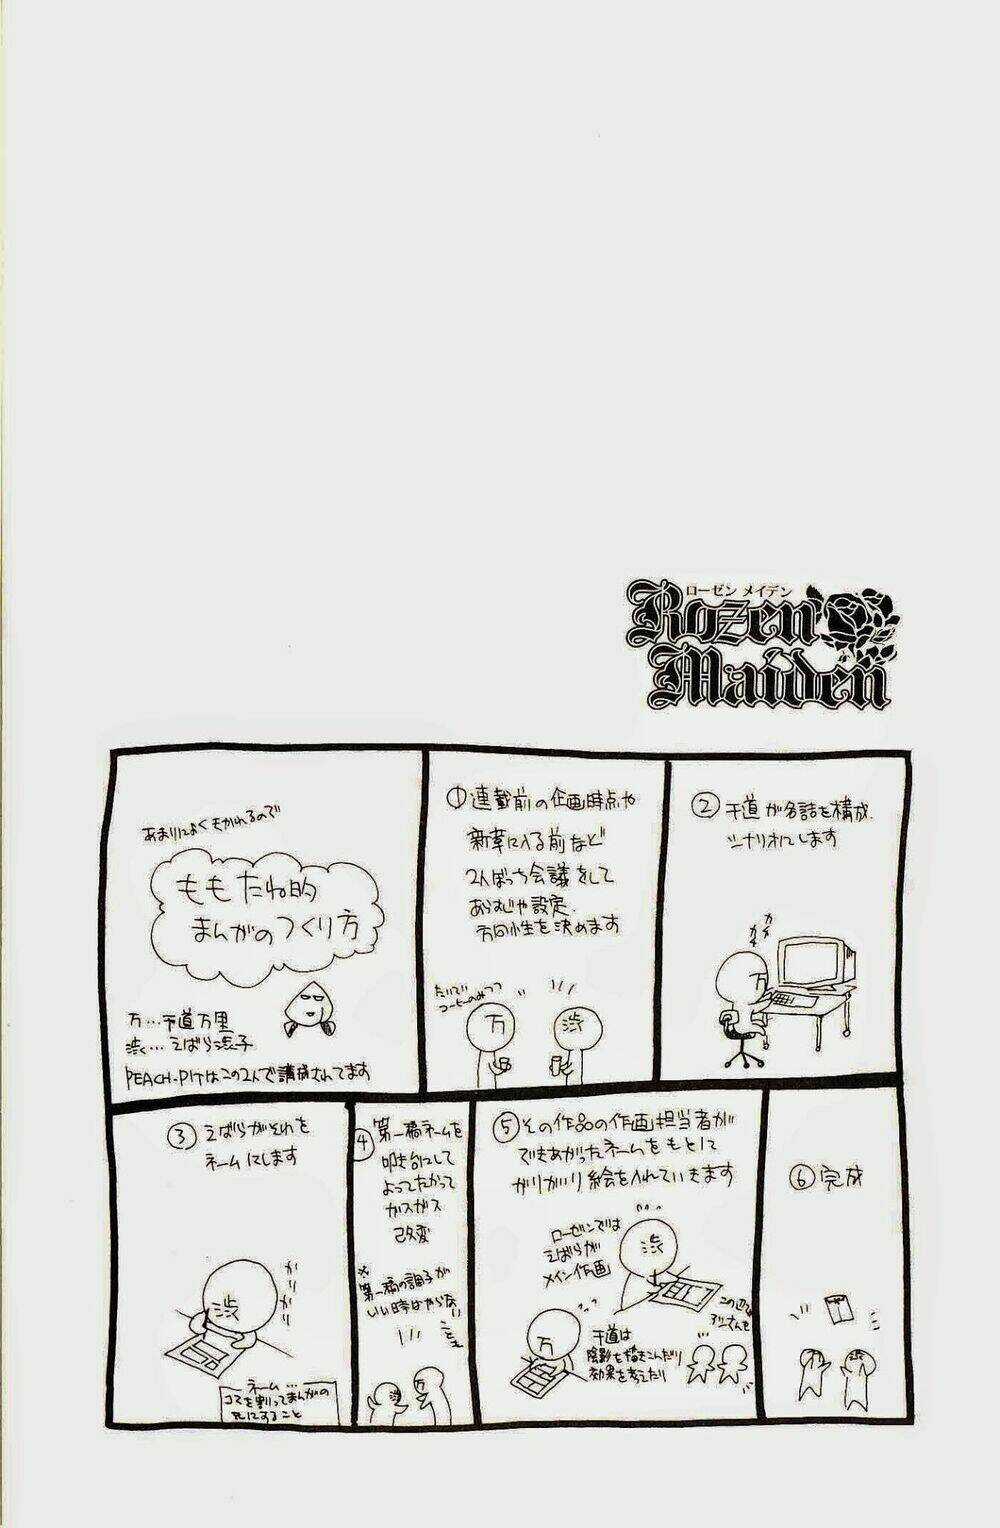 ローゼン メイデン
Rozen
Maiden
あまりによくきかれるので
ももたね的
まんがのつくり方
万…千道万里
渋…えばら渋子
PEACH-PITはこの2人で構成されてます
①連載前の企画時点や
新章に入る前など
2人ぼっち会議をして
あらすじや設定、
方向性を決めます
たいてい
コーヒーのみつつ
万
渋
②千道が各話を構成、
シナリオにします
カチ
カチ
万
③えばらがそれを
ネームにします
かりかり
渋
ネーム…
コマを割ってまんがの
元にすること
④第一稿ネームを
叩き台にして
よってたかって
ガスガス
改変
※第一稿の調子が
いい時はやらない
渋
万
⑤その作品の作画担当者が
できあがったネームをもとにして
がりがり絵を入れていきます
ローゼンでは
えばらが
メイン作画
渋
万
千道は
陰影を描きこんだり
効果を考えたり
この辺で
アシさんも
⑥完成
万
渋